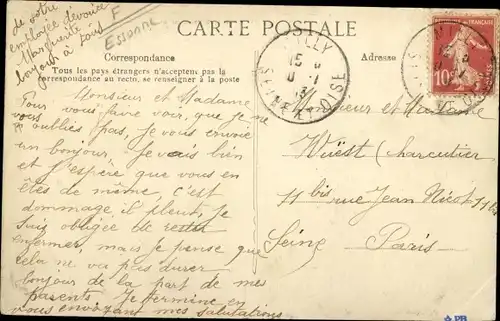 de votre
employée dévouée
Marguerite
bonjour à tous
F
Essonne
CARTE POSTALE
Correspondance
Adresse
Tous les pays étrangers n'acceptent pas la
correspondance au recto, se renseigner à la poste
ILLY
15
SEINE ET OISE
10
Monsieur et Madame
Pour vous faire voir, que je ne
vous oublies pas, Je vous envoie
un bonjour, Je vais bien
et j'espère que vous en
êtes de même, c'est
dommage, il pleut, Je
suis obligée de rester
enfermer, mais je pense que
cela ne va pas durer
bonjour de la part de mes
parents, Je termine en
vous envoyant mes salutations
Monsieur et Madame
Wüest (charcutier)
11 bis rue Jean Nicot
Seine Paris
PB